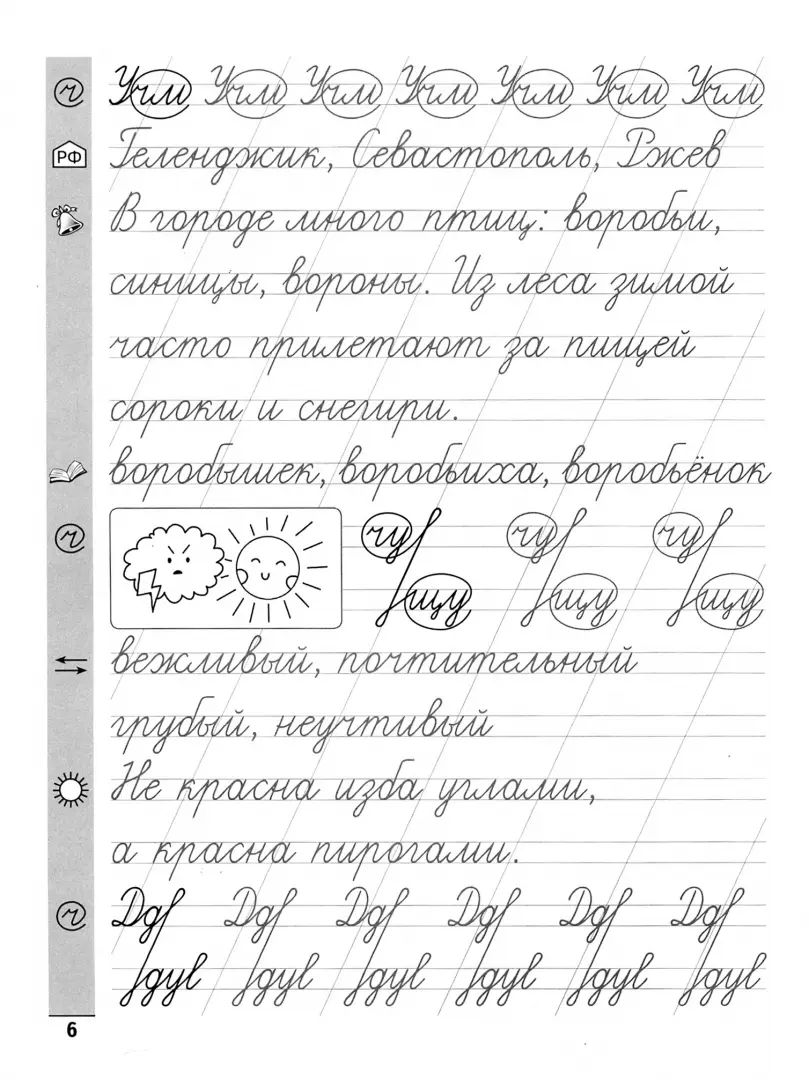 ч Учм Учм Учм Учм Учм Учм Учм
РФ Геленджик, Севастополь, Ржев
В городе много птиц: воробьи,
синицы, вороны. Из леса зимой
часто прилетают за пищей
сороки и снегири.
воробышек, воробьиха, воробьёнок
ч чу чу чу
щу щу щу
вежливый, почтительный
грубый, неучтивый
Не красна изба углами,
а красна пирогами.
ч Дд Дд Дд Дд Дд Дд
дув дув дув дув дув дув
6